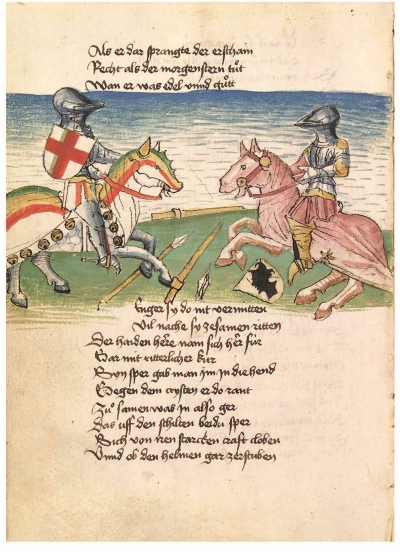 Als er dar sprangte der erschain
Recht als der morgenstern tuͦt
Wan er was edel vnnd guͦtt
Enger sy do nit vermitten
Vil nache sy zesamen ritten
Der haiden herre nam sich her für
Gar mit ritterlicher kür
Syn sper gab man im in die hend
Gegen dem cristen er do rant
Zuͦ samen was in also ger
Das uff den schilten beidu sper
Sich von iren starcken craft cloben
Vnnd ob den helmen gar zerstuben